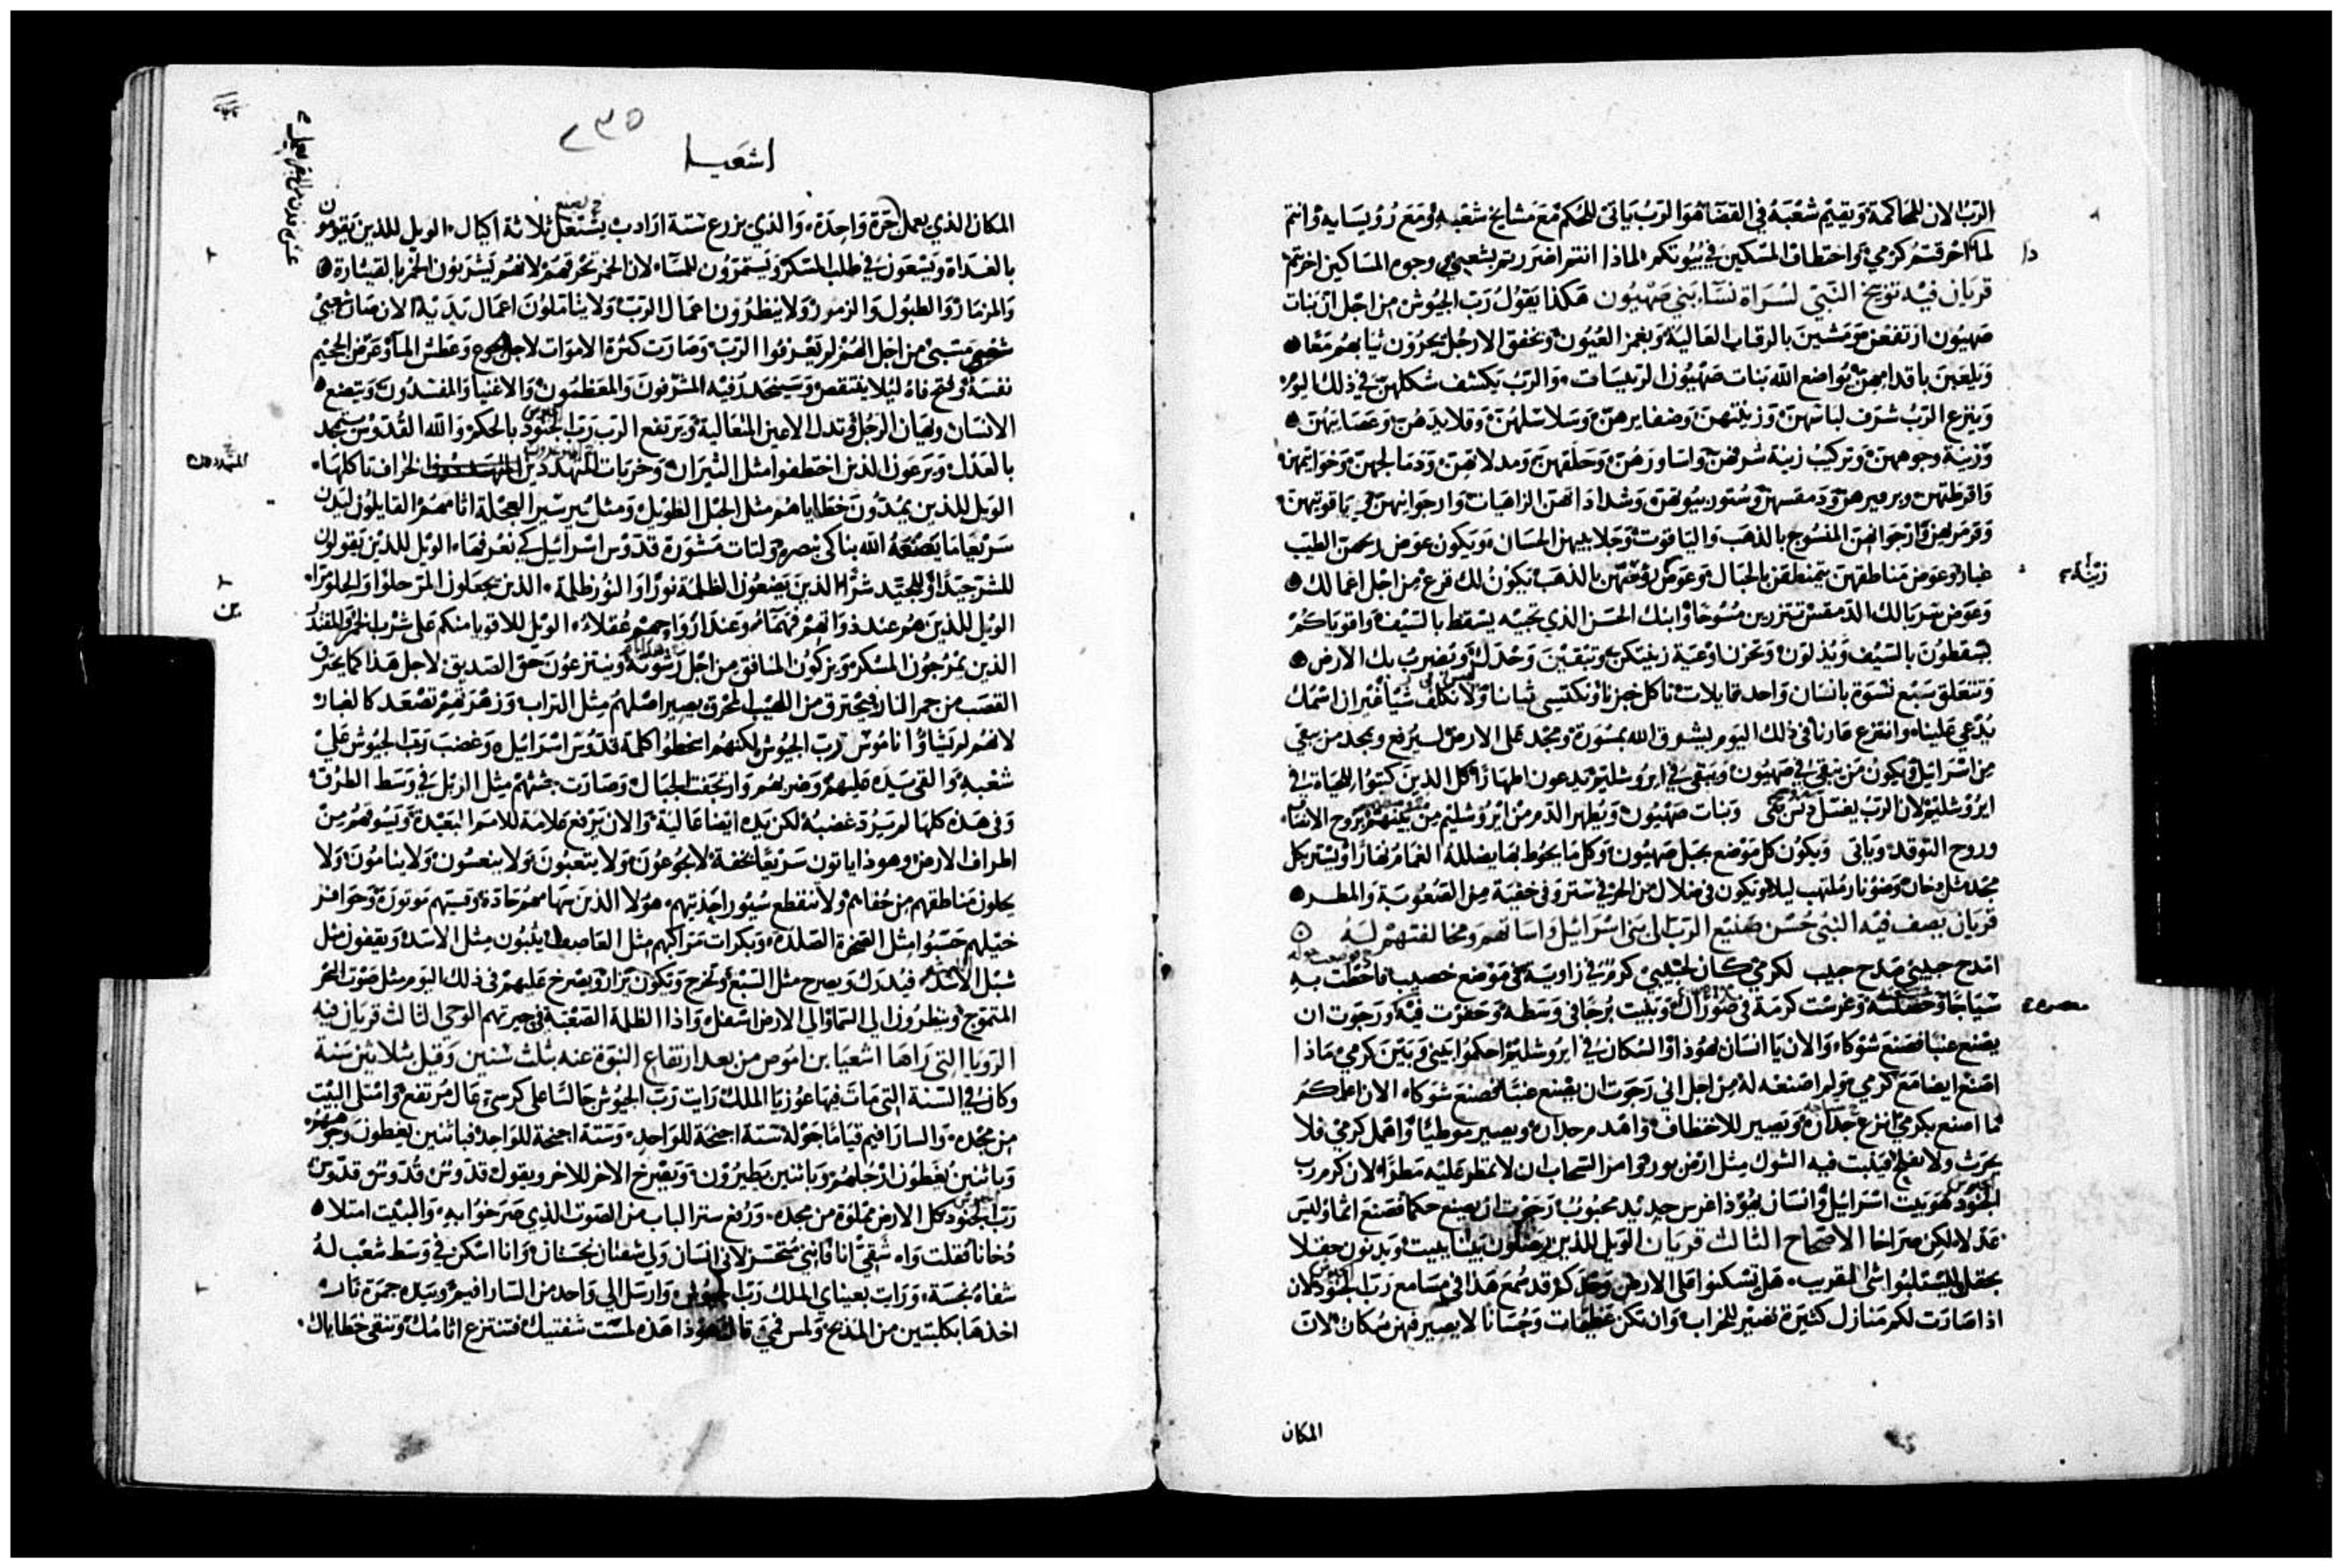 الرب الان للمحاكمة ويقيم شعبه في القضا هو الرب ياتى للحكم مع مشايخ شعبه ومع رؤيسايه وانتم
لماذا احرقتم كرمي واختطاف المسكين في بيوتكم لماذا انتم اضررتم بشعبي وجوه المساكين اخزيتم
قريان فيه توبيخ النبي لسراة نساء بني صهيون هكذا يقول رب الجيوش من اجل ان بنات
صهيون ارتفعن ومشين بالرقاب العالية وبغمز العيون وبخفق الارجل يجرون ثيابهم معا
ويلعبن باقدامهن يواضع الله بنات صهيون الرييسات والرب يكشف شكلهن في ذلك اليوم
وينزع الرب شرف لباسهن وزينتهن وضفايرهن وسلاسلهن وقلايدهن وعصايبهن
وزينة وجوههن وتركيب زينة شرفهن واساورهن وحلقهن ومدلاتهن ودمالجهن وخواتيمهن
واقرطتهن وبرفيرهن ودمقسهن وستور بيوتهن وارجوانهن ياقوتيهن
وقرمزهن وارجوانهن المنسوج بالذهب والياقوت وجلابيبهن الحسان ويكون عوض ريحهن الطيب
غبار وعوض مناطقهن يتمنطقن بالحبال وعوض بالذهب يكون لك قرع من اجل اعمالك
وعوض سربالك الدمقس تتزرين مسوحا وابنك الحسن الذي تحبيه يسقط بالسيف واقوياكم
يسقطون بالسيف ويذلون وتحزن اوعية زينتكن وتبقين وحدك وتضرب بك الارض
وتتعلق سبع نسوة بانسان واحد قايلات ناكل خبزنا ونكتسي ثيابنا ولا نكلف شيا غير ان اسمك
يدعي علينا وانتزع عارنا في ذلك اليوم يشرق الله بمشورة ومجد على الارض ليرفع ويمجد من بقي
من اسرائيل ويكون من يبقى في صهيون ويبقى في ايروشليم يدعون اطهارا كل الذين كتبوا للحياة في
ايروشليم لان الرب يغسل وبنات صهيون ويطهر الدم من ايروشليم من بينهم بروح
وروح التوقد وياتى ويكون كل موضع بجبل صهيون وكل ما يحوط بها يضلله الغمام نهارا
مجد مثل دخان وضو نار ملتهب ليلا ويكون في ضلال من الحر في ستر وفى خفية من الصعوبة والمطر
قريان يصف فيه النبى حسن صنيع الرب الى بنى اسرائيل واساتهم ومخالفتهم له
امدح حبيبي مدح حبيب لكرمي كان لحبيبي كرم في زاوية في موضع خصيب فاحطت به
سياجا وغرست كرمة في صوراق وبنيت برجا في وسطه وحفرت فيه ورجوت ان
يصنع عنبا فصنع شوكا والان يا انسان يهوذا والسكان في ايروشليم احكموا بيني وبين كرمي ماذا
اصنع ايضا مع كرمي ولم اصنعه له من اجل اني رجوت ان يصنع عنبا فصنع شوكا الان اعلمكم
ما اصنع بكرمي انزع ويصير للاختطاف واهدم جداره ويصير موطيا واهمل كرمي فلا
يحرث ولا يفلح فينبت فيه الشوك مثل ارض بور وامر السحاب ان لا تمطر عليه مطرا لان كرم رب
الجنود هو بيت اسرائيل وانسان يهوذا غرس جديد محبوب رجوت ان يصنع حكما فصنع اثما وليس
عدلا لكن صراخا الاصحاح الثالث قريان الويل للذين يصلون بيتا ببيت ويدنون حقلا
بحقل ليستلبوا شى لقريب هل تسكنوا على الارض وحدكم قد سمع هذا في مسامع رب الجنود لان
اذا صارت لكم منازل كثيرة تصير للخراب وان تكن عظيمات وحسانا لا يصير فيهن سكان لان
المكان
٢٣٥
اشعيا
المكان الذي يعمل جرة واحدة والذي يزرع ستة ارادب يستغل ثلاثة اكيال الويل للذين يقومون
بالغداة ويسعون في طلب المسكر ويستمرون للمساء لان الخمر تحرقهم لانهم يشربون الخمر بالقيثارة
والمزمار والطبول والزمور ولا ينظرون اعمال الرب ولا يتاملون اعمال يديه الان صار شعبي
مسبى من اجل انهم لم يعرفوا الرب وصارت كثرة الاموات لاجل الجوع وعطش الماء وعرض الجحيم
نفسه وفتح فاه ليلا ينتقص وسينحدر فيه المشرفون والمعظمون والاغنيا والمفسدون ويتضع
الانسان ويهان الرجل وتذل الاعين المتعالية ويرتفع الرب رب الجنود بالحكم والله القدوس يتمجد
بالعدل ويرعون الذين اختطفوا مثل الثيران وخربات المهددين الخراف تاكلها
الويل للذين يمدون خطاياهم مثل الحبل الطويل ومثل سير نير العجلة اثامهم القايلون ليدن
سريعا ما يصنعه الله بنا كي نبصره ولتات مشورة قدوس اسرائيل كي نعرفها الويل للذين يقولون
للشر جيدا وللجيد شرا الذين يضعون الظلمة نورا والنور ظلمة الذين يجعلون المر حلوا والحلو مرا
الويل للذين هم عند ذواتهم فهماء وعند ارواحهم عقلاء الويل للاقويا منكم على شرب الخمر والمقتدر
الذين يمزجون المسكر ويزكون المنافق من اجل رشوته وينتزعون حق الصديق لاجل هذا كما يحترق
القصب من جمر النار ويحترق من اللهيب المحرق يصير اصلهم مثل التراب وزهرتهم تصعد كالغبار
لانهم لم يشاؤا ناموس رب الجيوش لكنهم اسخطوا كلمة قدوس اسرائيل وغضب رب الجيوش على
شعبه والقى يده عليهم وضربهم وارتجفت الجبال وصارت جثثهم مثل الزبل في وسط الطرق
وفى هذه كلها لم يرد غضبه لكن يده ايضا عالية والان يرفع علامة للامم البعيدة ويسوقهم من
اطراف الارض وهوذا ياتون سريعا بخفة لا يجوعون ولا يتعبون ولا ينعسون ولا ينامون ولا
يحلون مناطقهم من حقايهم ولا تنقطع سيور احذيتهم هولا الذين سهامهم حادة وقسيهم موتورة وحوافر
خيلهم حسبوا مثل الصخرة الصلدة وبكرات مراكبهم مثل العاصف يثبون مثل الاسد ويقفون مثل
شبل الاسد فيدرك ويصرخ مثل السبع ويخرج ويكون يزار ويصرخ عليهم في ذلك اليوم مثل صوت البحر
المتموج وينظرون الى السماء والى الارض اسفل واذا الظلمة الصعبة في حيرتهم الوحى الثالث قريان فيه
الرويا التي راها اشعيا بن اموص من بعد ارتفاع النبوة عنه بثلث سنين وقيل بثلاثين سنة
وكان في السنة التي مات فيها عوزيا الملك رايت رب الجيوش جالسا على كرسي عال مرتفع وامتلى البيت
من مجده والسارافيم قياما حوله ستة اجنحة للواحد وستة اجنحة للواحد فباثنين يغطون وجوههم
وباثنين يغطون ارجلهم وباثنين يطيرون ويصرخ الاخر للاخر ويقول قدوس قدوس قدوس
رب الجنود كل الارض مملؤة من مجده ورفع ستر الباب من الصوت الذي صرخوا به والبيت امتلا
دخانا فقلت واه شقي انا فانني متحسر لاني انسان ولي شفتان نجستان وانا اسكن في وسط شعب له
شفاه نجسة ورايت بعيناي الملك رب الجيوش وارسل الي واحد من السارافيم وبيده جمرة نار
اخذها بكلبتين من المذبح ولمس فمي وقال هوذا هذه لمست شفتيك فتنتزع اثامك وتنقى خطاياك